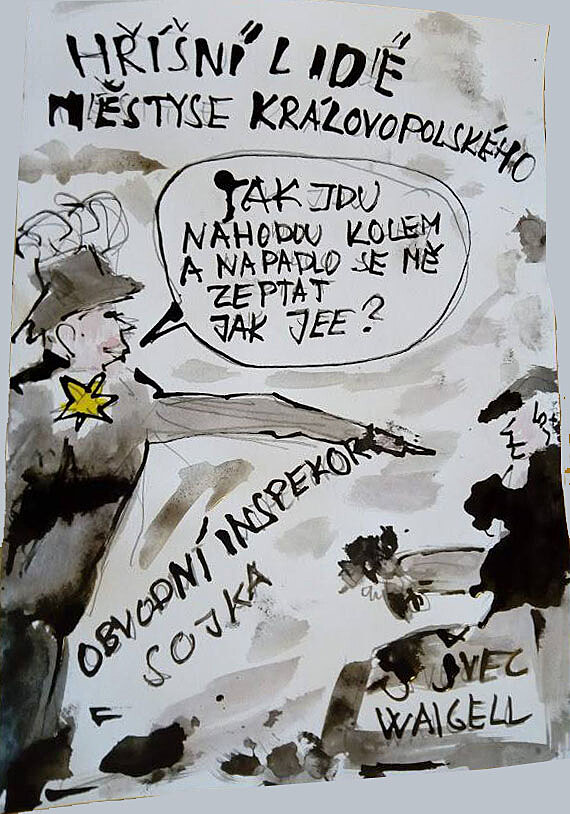 HŘÍŠNÍ LIDÉ
MĚSTYSE KRÁLOVOPOLSKÉHO
TAK JDU
NAHODOU KOLEM
A NAPADLO SE MĚ
ZEPTAT
JAK JEE?
OBVODNÍ INSPEKOR
SOJKA
WAIGELL